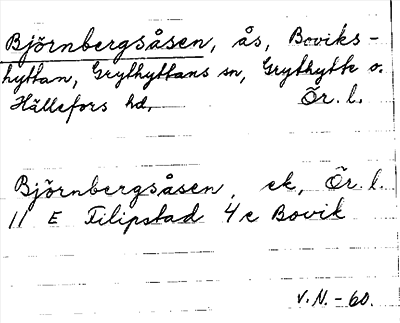 Björnbergsåsen, ås, Boviks-
hyttan, Grythyttans sn, Grythytte o.
Hällefors hd, Ör. l.
Björnbergsåsen, ek, Ör. l.
11 E Filipstad 4 c Bovik
V. N. - 60.